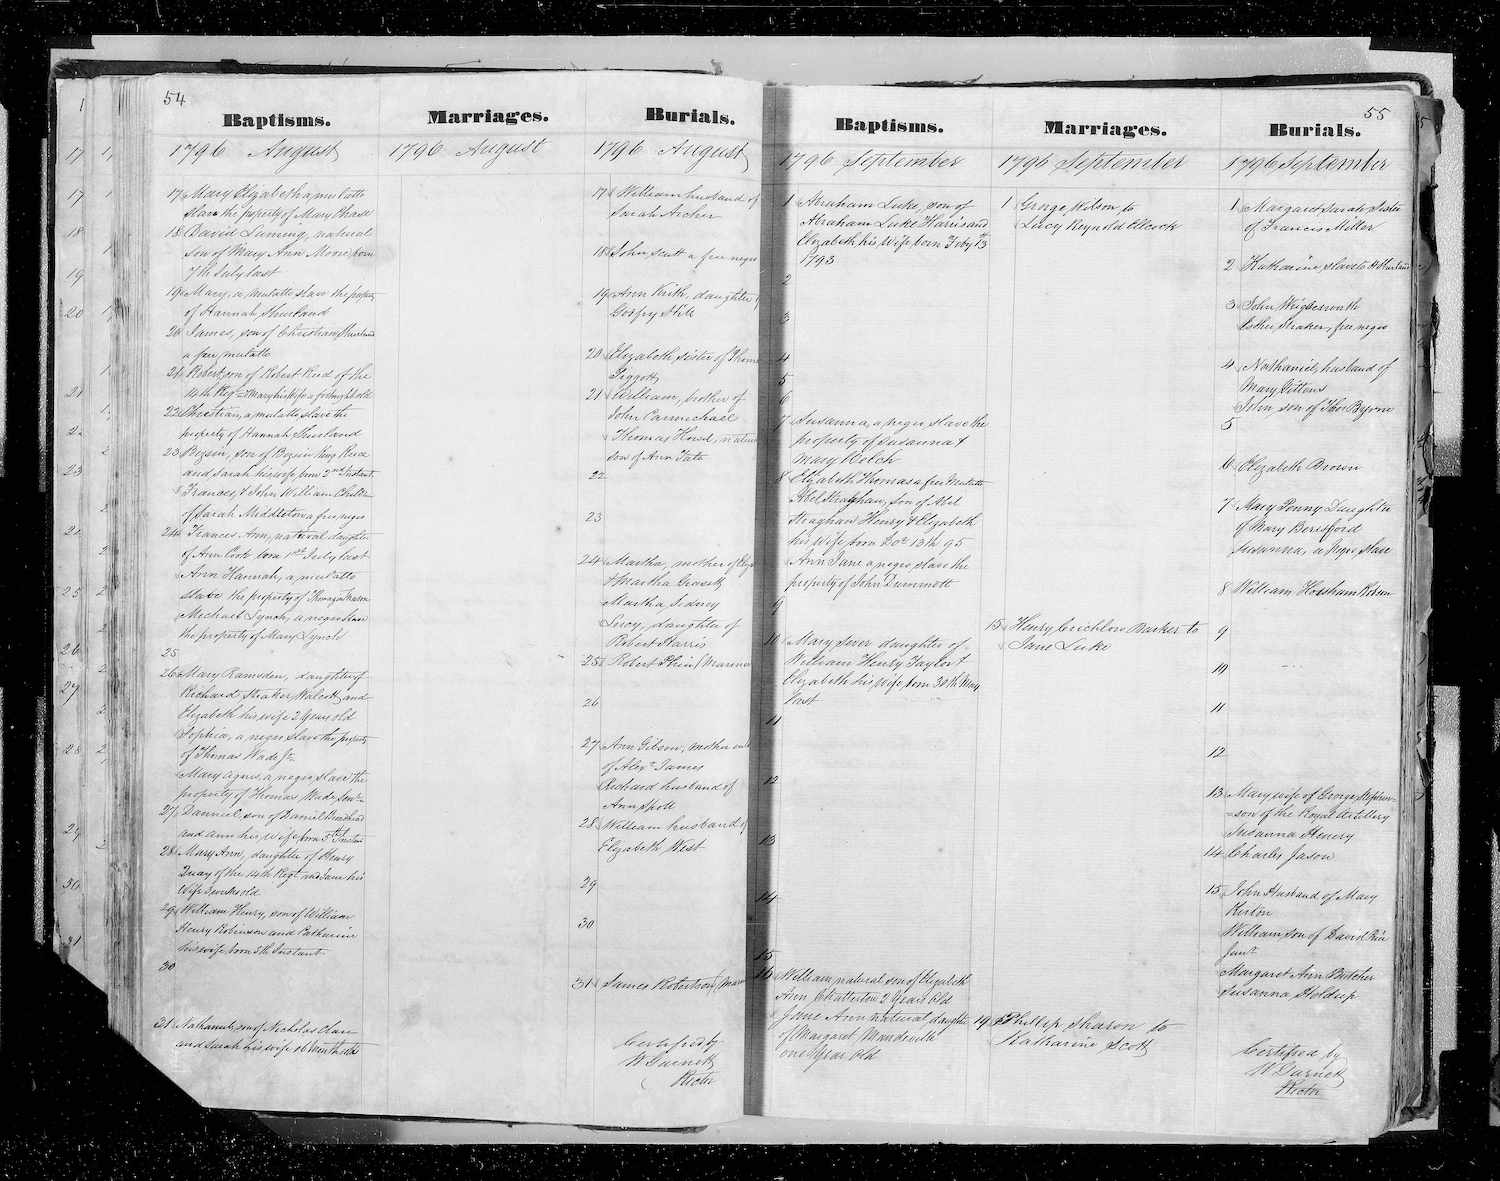 54
Baptisms.
1796 August
17 Mary Elizabeth a mulatto
slave the property of Mary Chase
18 David Laming, natural
son of Mary Ann Moore, born
7th July last
19 Mary, a mulatto slave the property
of Hannah Shurland
20 James, son of Christian Shurland
a free mulatto
21 Robert, son of Robert Reed of the
14th Regt & Mary his Wife a fortnight old
22 Christian, a mulatto slave the
property of Hannah Shurland
23 son of King
and Sarah his wife, born 2nd Instant
Frances & John William Childn
of Sarah Middleton a free negro
24 Frances Ann, natural daughter
of Ann Cook born 1st July last
Ann Hannah, a mulatto
slave the property of Thomas
Michael Lynch, a negro slave
the property of Mary Lynch
25
26 Mary Ramsden, daughter of
Richard Straker Walcott and
Elizabeth his wife 2 Years old
Sophia, a negro slave the property
of Thomas Wade Jr
Mary Agnes, a negro slave the
property of Thomas Wade Senr
27 Danniel, son of Daniel
and Ann his Wife born 5th Instant
28 Mary Ann, daughter of Henry
Quay of the 14th Regt and Jane his
Wife 3 weeks old
29 William Henry, son of William
Henry Robinson and Catharine
his wife born 5th Instant
30
31 Nathaniel, son of Nicholas
and Sarah his wife months old
Marriages.
1796 August
Burials.
1796 August
17 William husband of
Sarah Archer
18 John Scott a free negro
19 Ann Keith, daughter of
20 Elizabeth, sister of
Piggott
21 William, brother of
John Carmichael
Thomas
son of Ann Tate
22
23
24 Martha, mother of
& Martha Grassett
Martha Sidney
Lucy, daughter of
Robert Harris
25 Robert
26
27 Ann Gibson, mother
of Alexr James
Richard husband of
Ann Spott
28 William husband of
Elizabeth West
29
30
31 James Robertson
Certified by
W Garnett
Rector
Baptisms.
1796 September
1 Abraham Luke, son of
Abraham Luke Harris and
Elizabeth, his Wife, born Feby 13th
1793
2
3
4
5
6
7 Susanna, a negro slave the
property of Susanna &
Mary Welch
8 Elizabeth Thomas a free Mulatto
Abel Straghan, son of Abel
Straghan Henry & Elizabeth
his Wife, born Dor 13th 95
Ann Jane a negro slave the
property of John Dummott
9
10 Mary daughter of
William Henry Taylor &
Elizabeth his Wife, born 30th May
last
11
12
13
14
15
16 William, natural son of Elizabeth
Ann Chatterton 2 Years Old
Jane Ann natural daughter
of Margaret Mandeville
one Year Old
55
Marriages.
1796 September
1 George Wilson to
Lucy Reynold Ellcock
15 Henry Crichlow Barker to
Jane Luke
19 Phillip Sharon to
Katharine Scott
Burials.
1796 September
1 Margaret Sarah Sister
of Francis Miller
2 Katharine, slave to H Shurland
3 John Wiglesworth
Esther Straker, free negro
4 Nathaniel, husband of
Mary Gittens
John, son of Thos Byrom
5
6 Elizabeth Brown
7 Mary Penny Daughter
of Mary Beresford
Susanna, a Negro, Slave
8 William Horsham
9
10
11
12
13 Mary wife of George Stephen-
-son of the Royal Artillery
Susanna Henry
14 Charles Jason
15 John Husband of Mary
William son of David
Junr
Margaret Ann Butcher
Susanna Holdup
Certified by
W Garnett
Rector